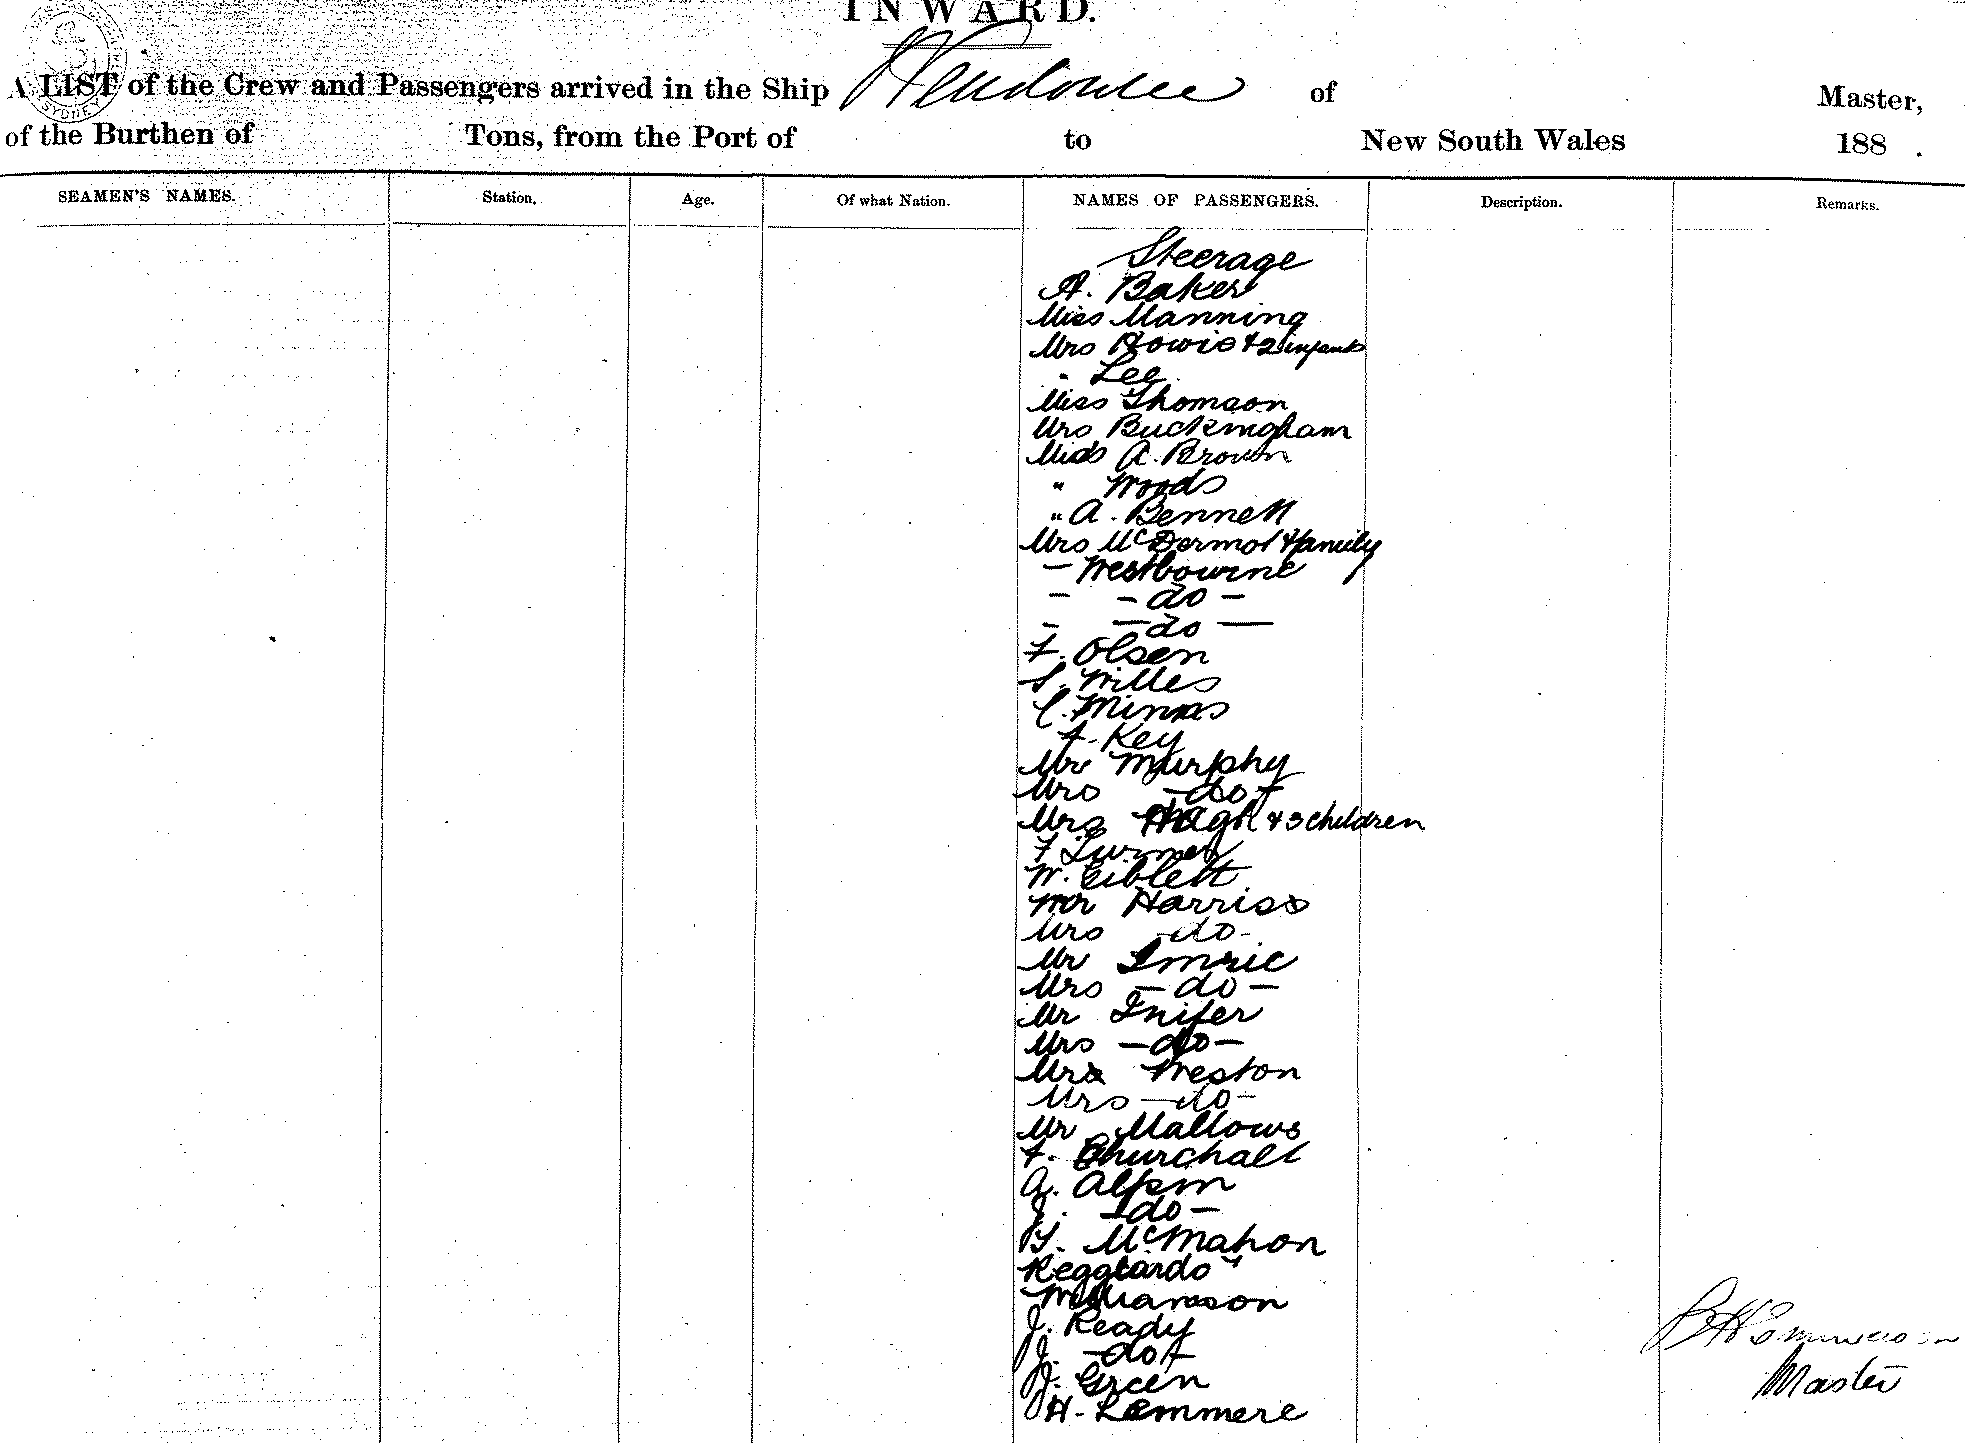 INWARD.
A LIST of the Crew and Passengers arrived in the Ship of Master,
of the Burthen of Tons, from the Port of to New South Wales 188 .
SEAMEN'S NAMES. Station. Age. Of what Nation. NAMES OF PASSENGERS. Description. Remarks.
Steerage
A. Baker
Miss Manning
Mrs Howie & 2 infants
" Lee
Miss Thomson
Mrs Buckingham
Miss A. Brown
" Woods
" A. Bennett
Mrs McDermot & family
- Westbourne
- - do -
- - do -
F. Olsen
S. Willes
C. Minns
F. Key
Mr Murphy
Mrs - do -
Mrs & 3 children
F Turner
W. Giblett
Mr Harriss
Mrs - do -
Mr Imrie
Mrs - do -
Mr Knifer
Mrs - do -
Mr Weston
Mrs - do -
Mr Mallows
F. Churchall
A. Alpin
J. - do -
G. McMahon
Reggiardo
Williamson
J. Ready
J. - do -
J. Green
H. Lemmere
Master